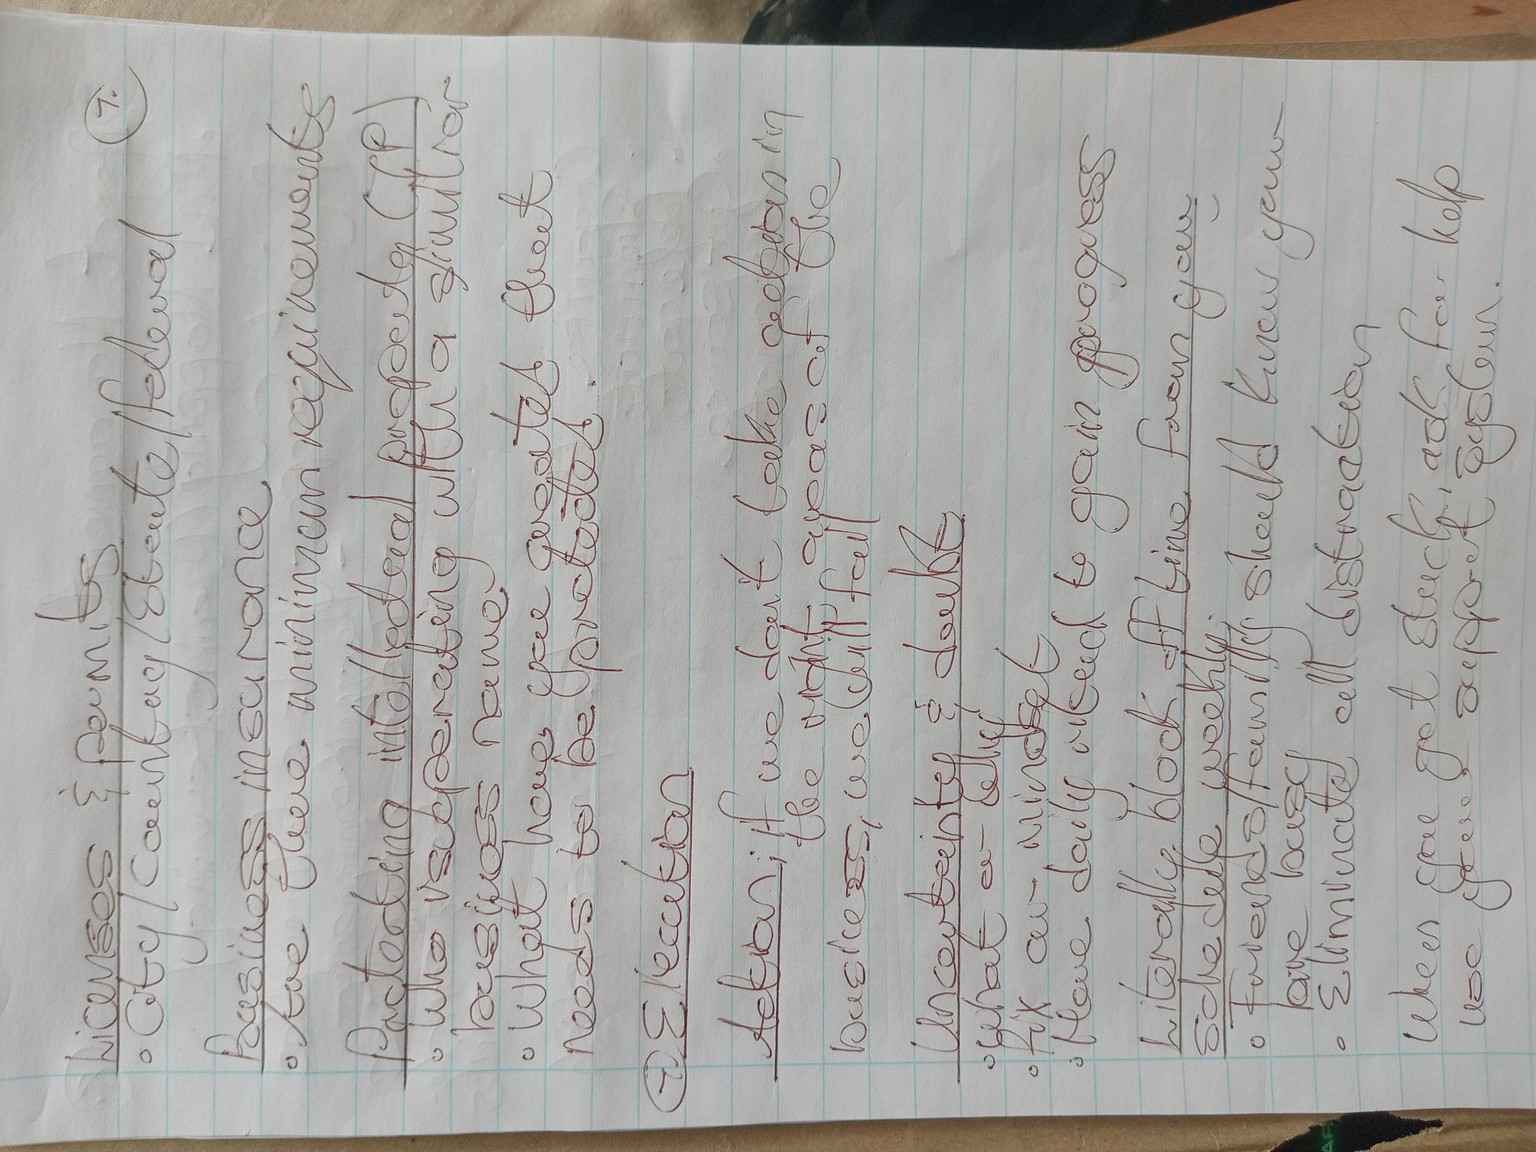 7.
Licenses & permits
• City/Country/State/Federal
Business insurance
• Are there minimum requirements
Protecting intellectual property (IP)
• Who is operating with a similar
business name?
• What have you created that
needs to be protected.
7) Execution
Action: if we don't take action in
the right areas of the
business, we will fail
Uncertainty & doubt
• What or
• Fix our mindset
• Have daily need to gain progress
Literally block off time from your
schedule weekly.
• Friends/family should know your
are busy
• Eliminate all distraction
When you get stuck, ask for help
use your support system.